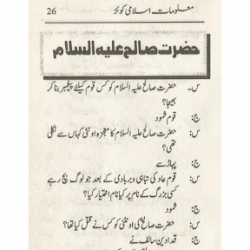 معلومات اسلامی کوئز 26
حضرت صالح علیہ السلام
س:۔ حضرت صالح علیہ السلام کو کس قوم کیلئے پیغمبر بنا کر
بھیجا؟
ج: قوم ثمود
س: حضرت صالح علیہ السلام کا معجزہ اونٹنی کہاں سے نکلی
تھی؟
ج: پہاڑ سے
س: قوم عاد کی تباہی و بربادی کے بعد جو لوگ بچ رہے
کسی بزرگ کے نام پر کیا نام اختیار کیا؟
ج: ثمود
س: حضرت صالح کی اونٹنی کو کس نے قتل کیا تھا؟
ج: قدار بن سالف نے